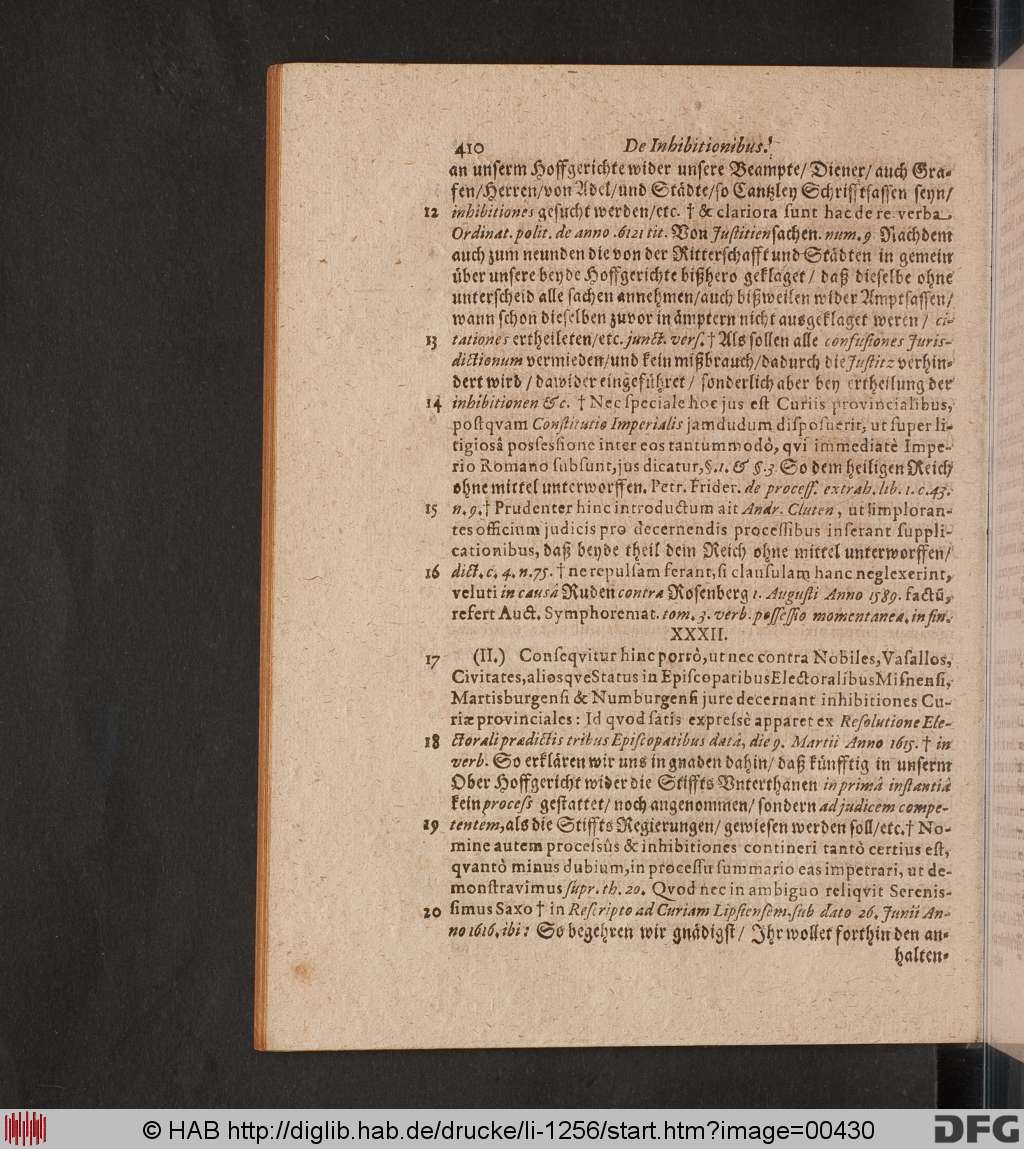 410 De Inhibitionibus.
an unserm Hoffgerichte wider unsere Beampte/ Diener/ auch Gra-
fen/Herren/von Adel/und Städte/so Cantzley Schrifftsassen seyn/
12 inhibitiones gesucht werden/etc. † & clariora sunt hac de re verba
Ordinat. polit. de anno .6121 tit. Von Justitien sachen. num. 9 Nachdem
auch zum neunden die von der Ritterschafft und Städten in gemein
über unsere beyde Hoffgerichte bißhero geklaget/ daß dieselbe ohne
unterscheid alle sachen annehmen/auch bißweilen wider Amptsassen/
wann schon dieselben zuvor in ämptern nicht ausgeklaget weren/ ci-
13 tationes ertheileten/etc. junct. vers. † Als sollen alle confusiones Juris-
dictionum vermieden/und kein mißbrauch/dadurch die Justitz verhin-
dert wird/ dawider eingeführet/ sonderlich aber bey ertheilung der
14 inhibitionen &c. † Nec speciale hoc jus est Curiis provincialibus,
postqvam Constitutio Imperialis jamdudum disposuerit, ut super li-
tigiosâ possessione inter eos tantummodò, qvi immediatè Impe-
rio Romano subsunt, jus dicatur, §.1. & §.3. So dem heiligen Reich
ohne mittel unterworffen. Petr. Frider. de process. extrah. lib. 1. c.43.
15 n.9. † Prudenter hinc introductum ait Andr. Cluten, ut imploran-
tes officium judicis pro decernendis processibus inserant suppli-
cationibus, daß beyde theil dem Reich ohne mittel unterworffen/
16 dict. c. 4. n.75. † ne repulsam ferant, si clausulam hanc neglexerint,
veluti in causâ Ruden contra Rosenberg 1. Augusti Anno 1589. factũ,
refert Auct. Symphoremat. tom. 3. verb. possessio momentanea. in fin.
XXXII.
17 (II.) Conseqvitur hinc porrò, ut nec contra Nobiles, Vasallos,
Civitates, aliosqve Status in Episcopatibus Electoralibus Misnensi,
Martisburgensi & Numburgensi jure decernant inhibitiones Cu-
riæ provinciales: Id qvod satis expressè apparet ex Resolutione Ele-
18 ctorali prædictis tribus Episcopatibus datâ, die 9. Martii Anno 1615. † in
verb. So erklären wir uns in gnaden dahin/ daß künfftig in unserm
Ober Hoffgericht wider die Stiffts Unterthanen in primâ instantiâ
kein process gestattet/ noch angenommen/ sondern ad judicem compe-
19 tentem, als die Stiffts Regierungen/ gewiesen werden soll/etc. † No-
mine autem processûs & inhibitiones contineri tantò certius est,
qvantò minus dubium, in processu summario eas impetrari, ut de-
monstravimus supr. th. 20. Qvod nec in ambiguo reliqvit Serenis-
20 simus Saxo † in Rescripto ad Curiam Lipsiensem. sub dato 26. Junii An-
no 1616. ibi: So begehren wir gnädigst/ Ihr wollet forthin den an-
halten-
© HAB http://diglib.hab.de/drucke/li-1256/start.htm?image=00430
DFG